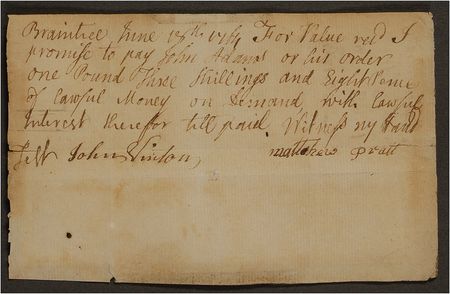 Braintree June 18th 1764 For Value recd I
promise to pay John Adams or his order
one Pound Three Shillings and Eight Pence
of Lawful Money on Demand with Lawful
Interest therefor till paid Witness my Hand
Test John Vinton, matthew pratt